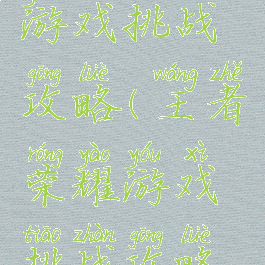 游戏挑战
gōng lüè wáng zhě
攻略(王者
róng yào yóu xì
荣耀游戏
tiāo zhàn gōng lüè
挑战攻略